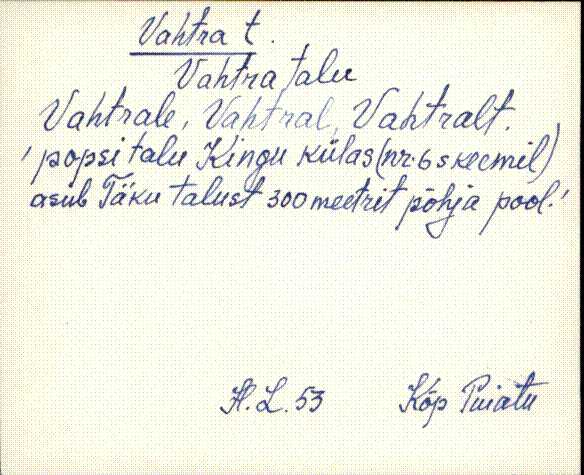 Vahtra t.
Vahtra talu
Vahtrale, Vahtral, Vahtralt.
'popsi talu Kingu külas (nr. 6 skeemil)
asub Täku talust 300 meetrit põhja pool.'
H. L. 53 Kõp Puiatu